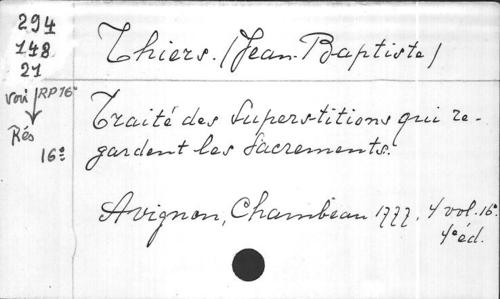 294
148
21
voir RP 16°
Rés
16°
Thiers. (Jean-Baptiste)
Traité des Superstitions qui re-
gardent les Sacrements.
Avignon, Chambeau 1777, 4 vol. 16°.
4e éd.